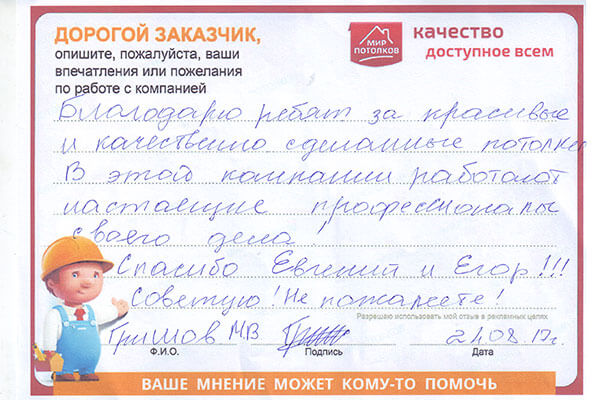 ДОРОГОЙ ЗАКАЗЧИК,
опишите, пожалуйста, ваши
впечатления или пожелания
по работе с компанией
МИР
ПОТОЛКОВ
качество
доступное всем
Благодарю ребят за красивые
и качественно сделанные потолки
В этой компании работают
настоящие профессионалы
своего дела!
Спасибо Евгений и Егор!!!
Советую! Не пожалеете!
Разрешаю использовать мой отзыв в рекламных целях
Гришов МВ
21.08.17г.
Ф.И.О.
Подпись
Дата
ВАШЕ МНЕНИЕ МОЖЕТ КОМУ-ТО ПОМОЧЬ